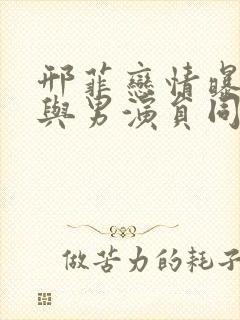 邢菲戀情曝
與男演員同
做苦力的耗子